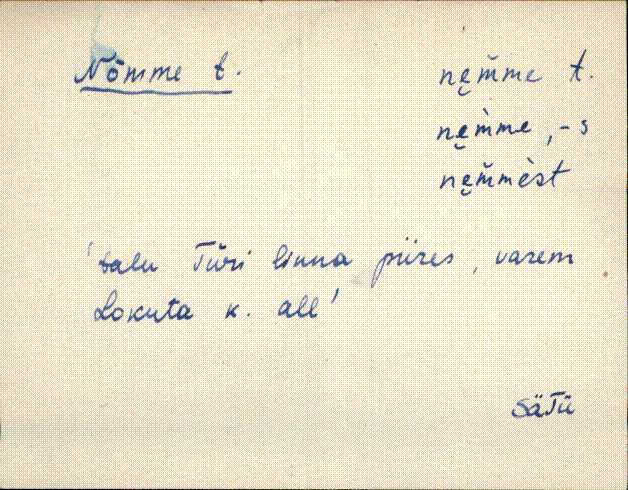 Nõmme t.
ne̮m̆me t.
ne̮m̀me, -s
ne̮m̆mèst
'talu Türi linna piires, varem
Lokuta k. all'
SäTü